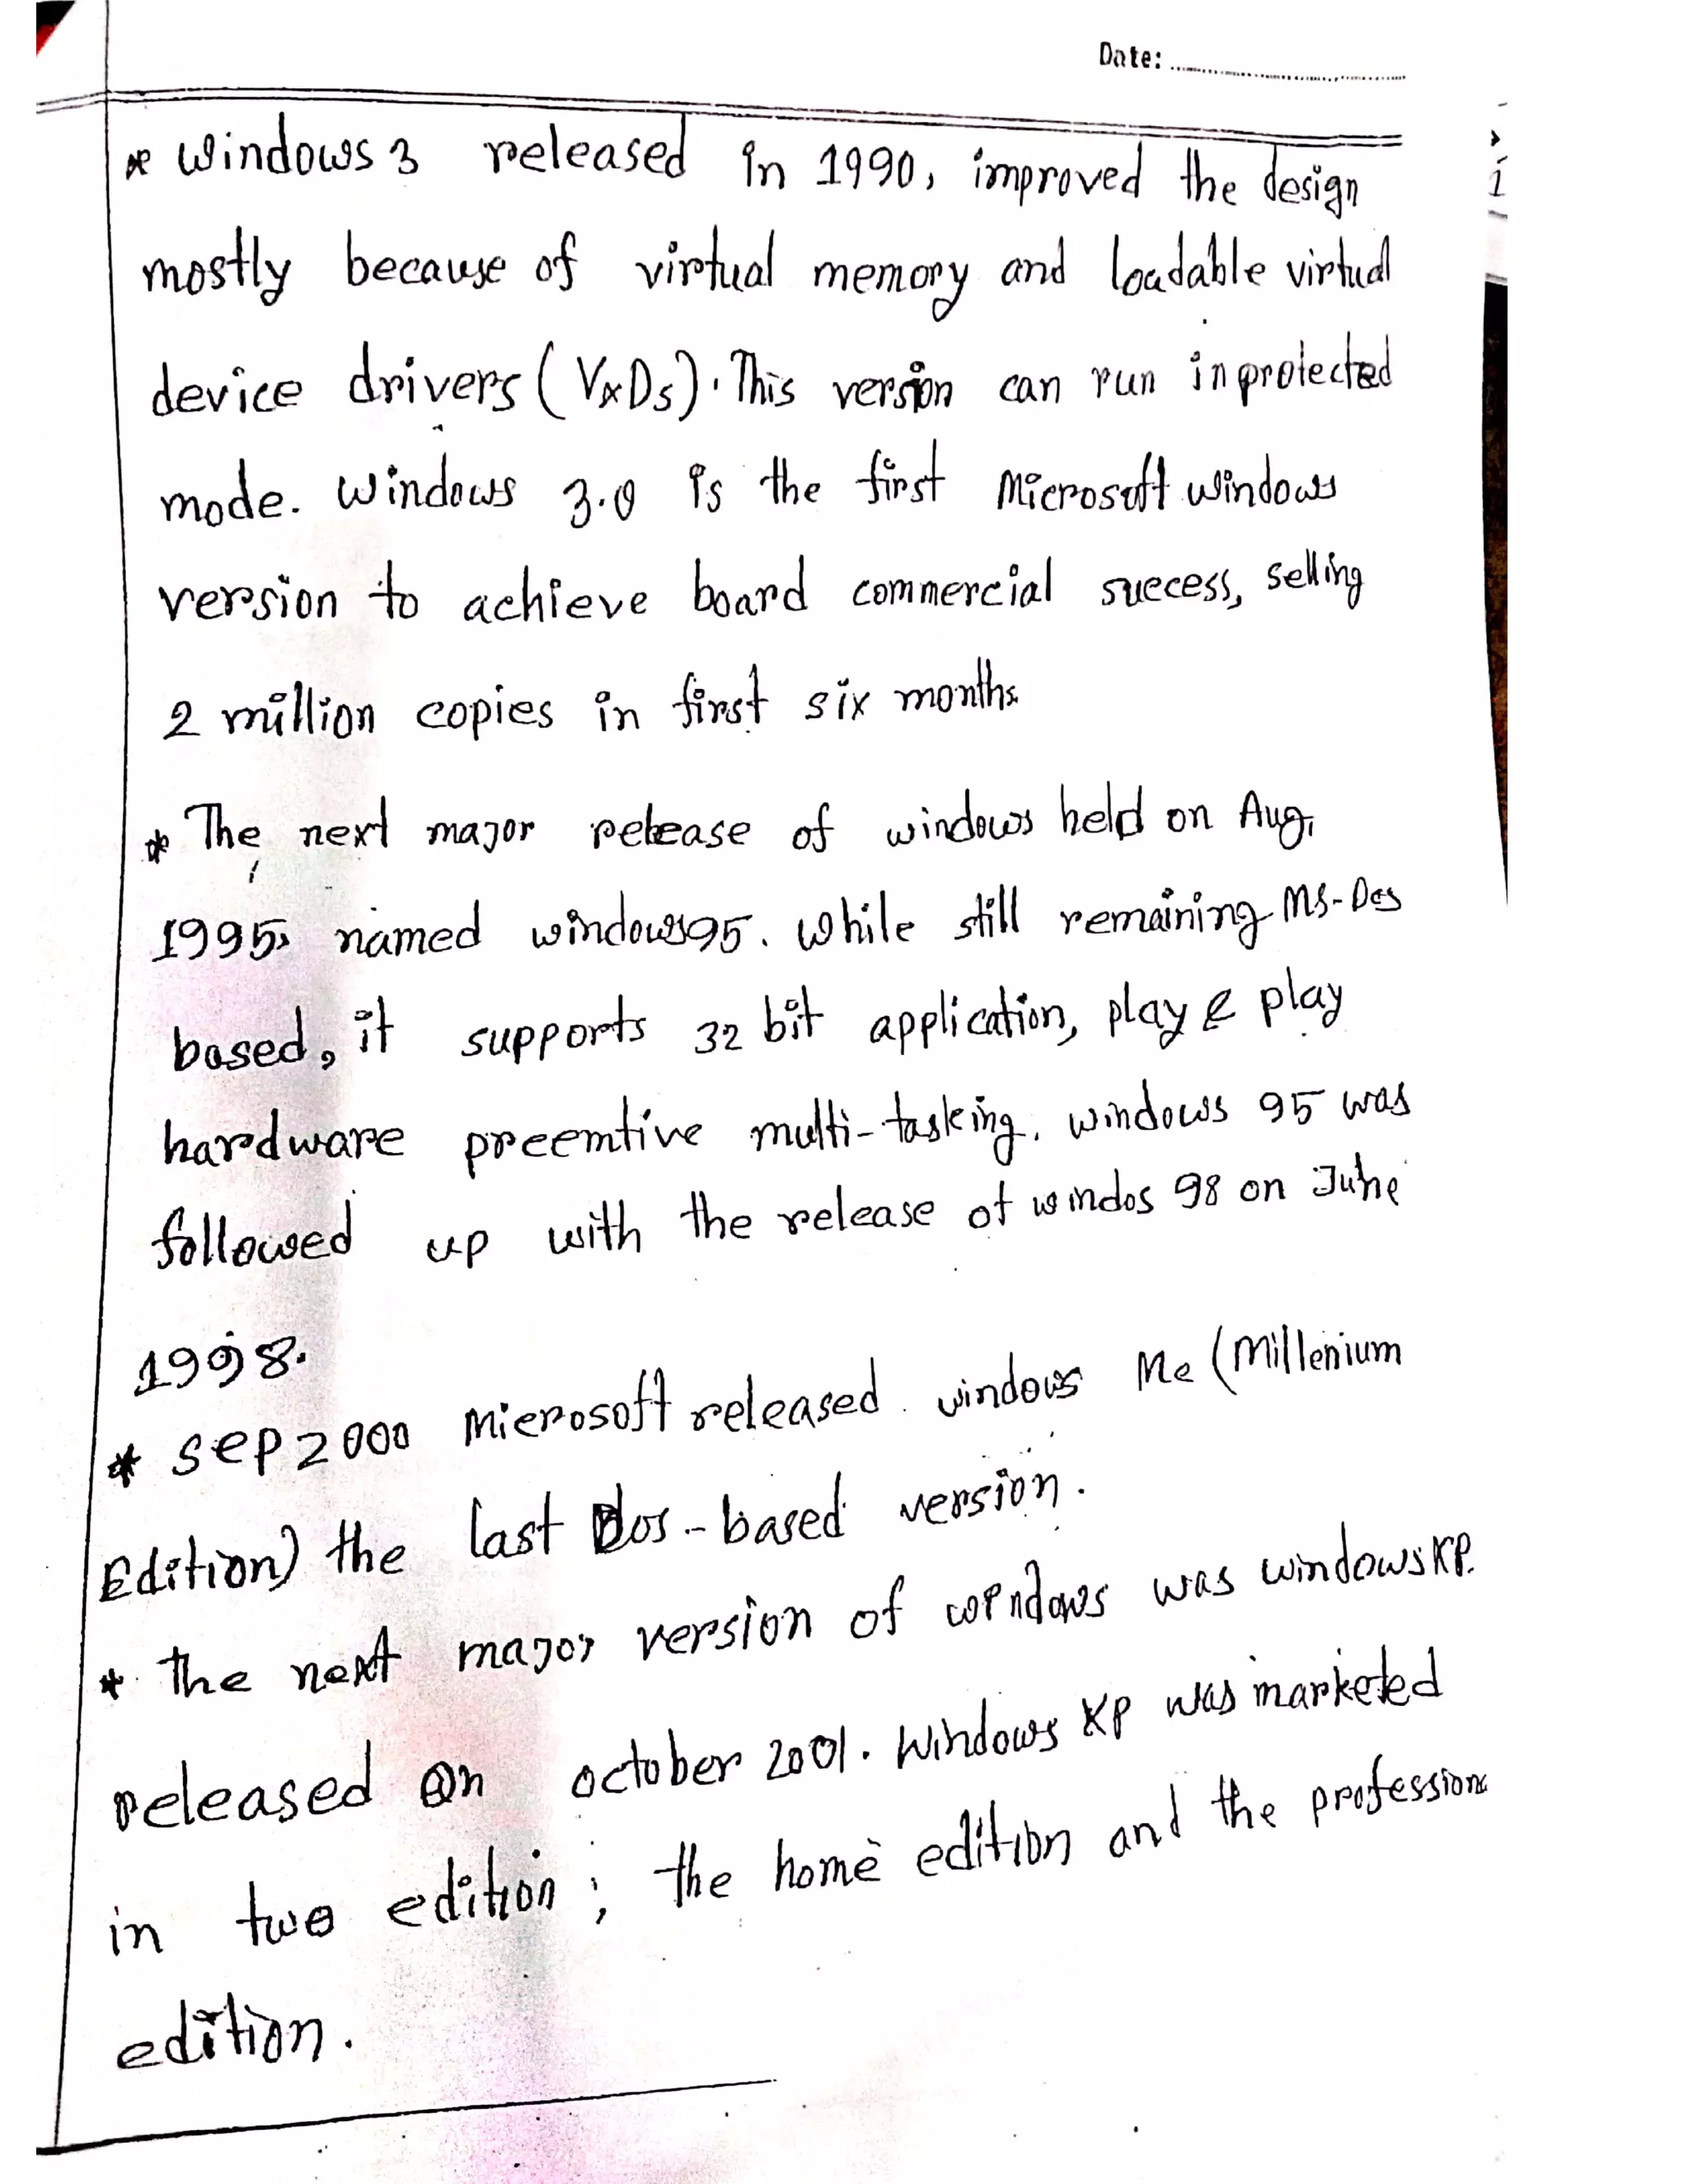 Date:
* Windows 3 released in 1990, improved the design
mostly because of virtual memory and loadable virtual
device drivers (VxDs). This version can run in protected
mode. Windows 3.0 is the first Microsoft windows
version to achieve board commercial success, selling
2 million copies in first six months.
* The next major release of windows held on Aug,
1995, named windows95. While still remaining MS-Dos
based, it supports 32 bit application, play & play
hardware preemtive multi-tasking. windows 95 was
followed up with the release of windos 98 on June
1998.
* Sep 2000 Microsoft released windows Me (Millenium
Edition) the last Dos-based version.
* The next major version of windows was windows XP.
released on october 2001. Windows XP was marketed
in two edition; the home edition and the professiona
edition.